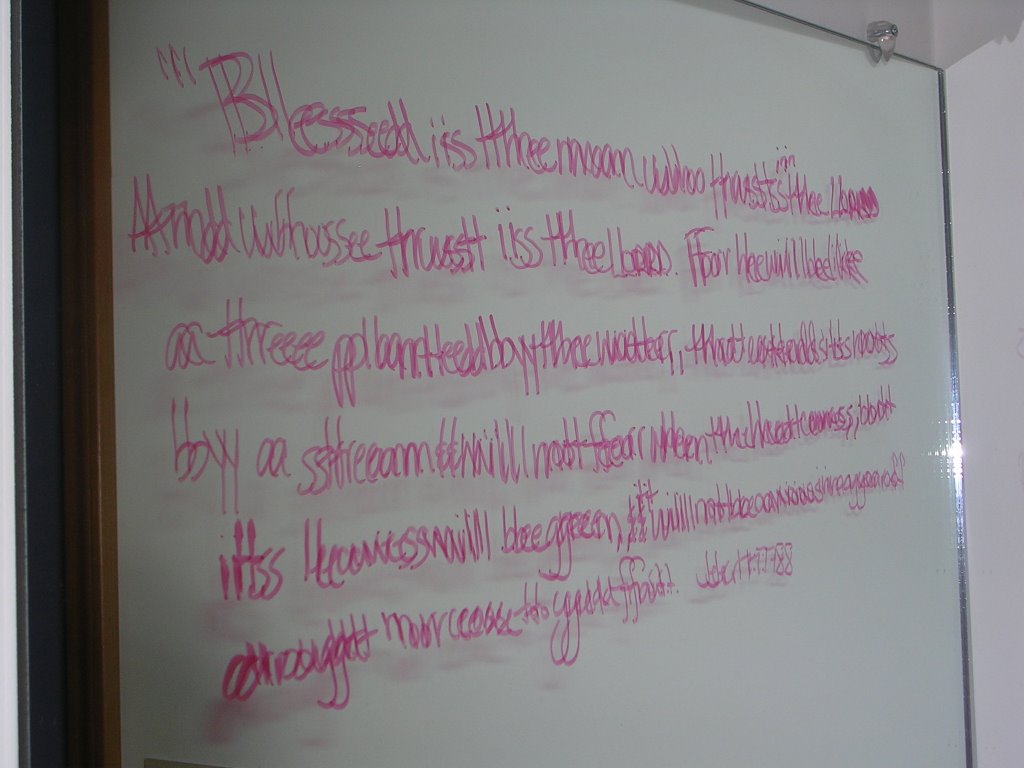 "Blessed is the man who trusts in the LORD
And whose trust is the LORD. For he will be like
a tree planted by the water, that extends its roots
by a stream & will not fear when the heat comes; but
its leaves will be green, & it will not be anxious in a year of
drought nor cease to yield fruit. Jer 17:7-8